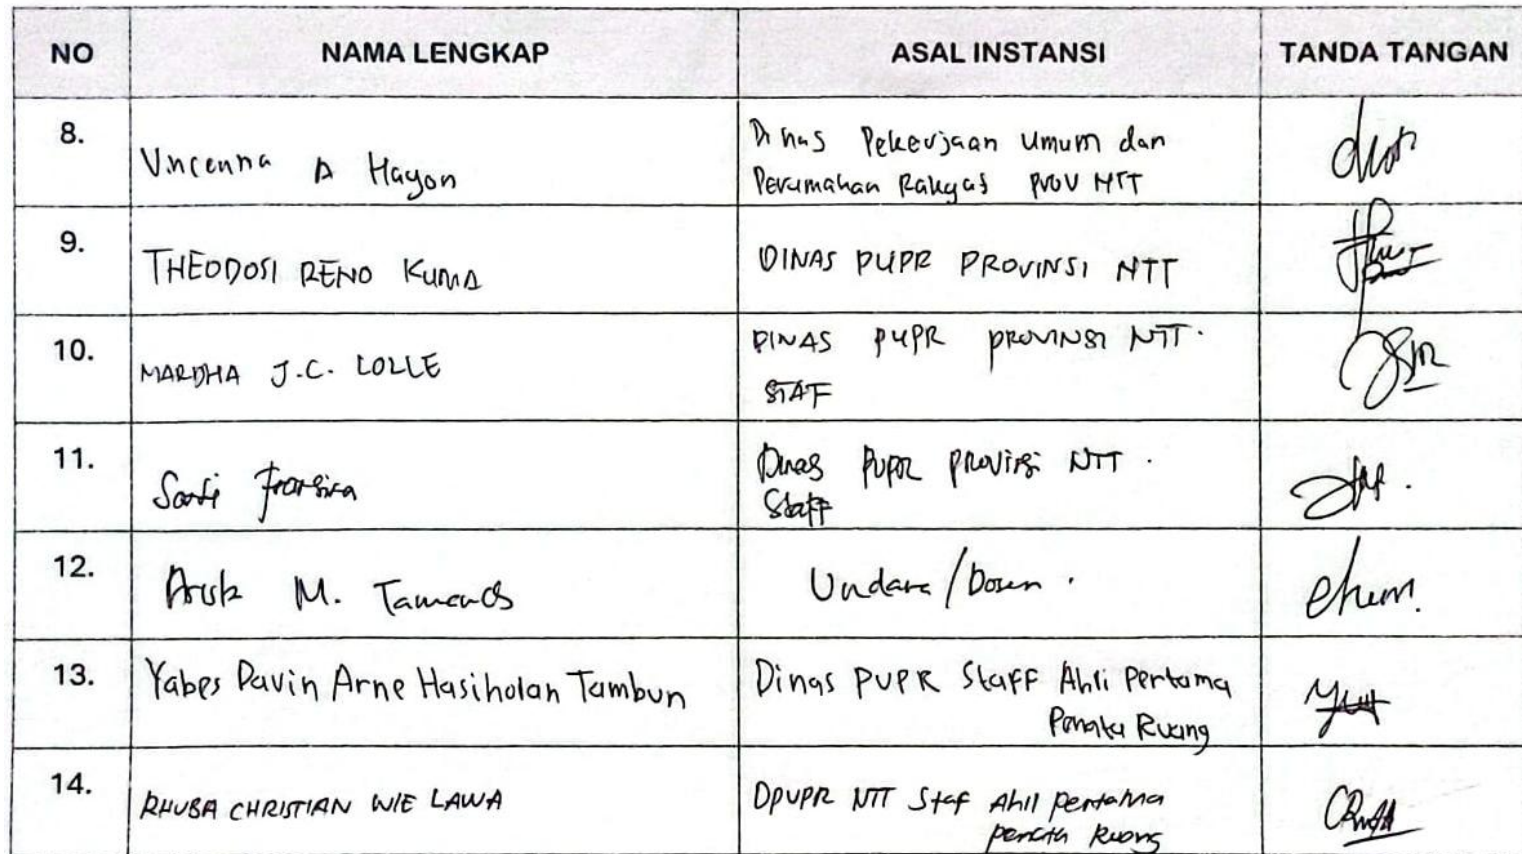 NO NAMA LENGKAP ASAL INSTANSI TANDA TANGAN
8. Vincenna A Hayon Dinas Pekerjaan Umum dan
Perumahan Rakyat Prov NTT
9. THEODOSI RENO KUMA DINAS PUPR PROVINSI NTT
10. MARDHA J.C. LOLLE DINAS PUPR PROVINSI NTT.
STAF
11. Santi Dinas PUPR Provinsi NTT.
Staff
12. M. Undana/Dosen.
13. Yabes Davin Arne Hasiholan Tambun Dinas PUPR Staff Ahli Pertama
Penata Ruang
14. RHUBA CHRISTIAN WIE LAWA DPUPR NTT Staf Ahli pertama
penata Ruang